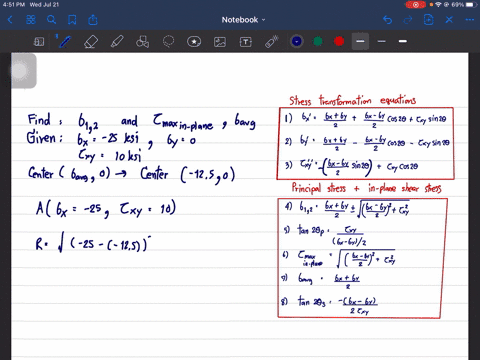 4:51 PM Wed Jul 21
69%
Notebook
Find: σ1,2 and τmax in-plane, σavg
Given: σx = -25 ksi, σy = 0
τxy = 10 ksi
Center (σavg, 0) → Center (-12.5, 0)
A (σx = -25, τxy = 10)
R = √(-25 - (-12.5))
Stress transformation equations
1) σx' = (σx + σy)/2 + (σx - σy)/2 cos2θ + τxy sin2θ
2) σy' = (σx + σy)/2 - (σx - σy)/2 cos2θ - τxy sin2θ
3) τx'y' = -((σx - σy)/2 sin2θ) + τxy cos2θ
Principal stress + in-plane shear stress
4) σ1,2 = (σx + σy)/2 ± √(((σx - σy)/2)² + τ²xy)
5) tan 2θp = τxy/((σx - σy)/2)
6) τmax in-plane = √(((σx - σy)/2)² + τ²xy)
7) σavg = (σx + σy)/2
8) tan 2θs = -(σx - σy)/(2 τxy)